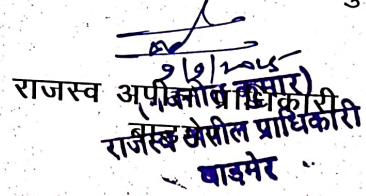 9/9/2015
राजस्व अपील प्राधिकारी
कुमार)
बाड़मेर
राजस्व अपील प्राधिकारी
बाड़मेर